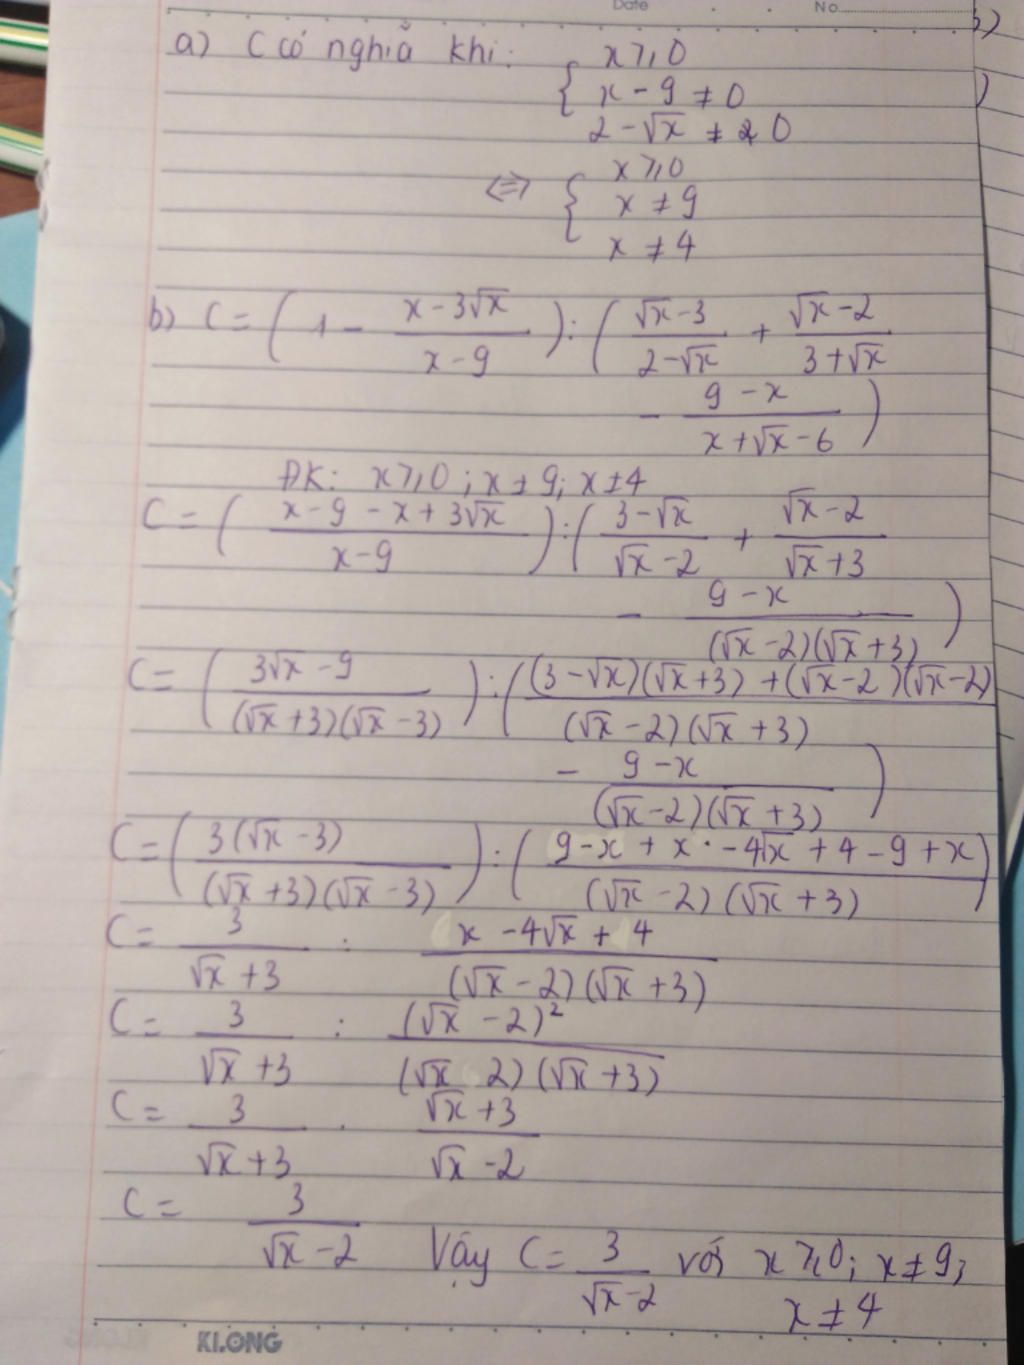 Date No.
a) C có nghĩa khi: { x ⩾ 0
x - 9 ≠ 0
2 - √x ≠ 0
⇔ { x ⩾ 0
x ≠ 9
x ≠ 4
b) C = ( 1 - (x - 3√x)/(x - 9) ) : ( (√x - 3)/(2 - √x) + (√x - 2)/(3 + √x)
- (9 - x)/(x + √x - 6) )
ĐK: x ⩾ 0 ; x ≠ 9; x ≠ 4
C = ( (x - 9 - x + 3√x)/(x - 9) ) : ( (3 - √x)/(√x - 2) + (√x - 2)/(√x + 3)
- (9 - x)/((√x - 2)(√x + 3)) )
C = ( (3√x - 9)/((√x + 3)(√x - 3)) ) : ( ((3 - √x)(√x + 3) + (√x - 2)(√x - 2))/((√x - 2)(√x + 3))
- (9 - x)/((√x - 2)(√x + 3)) )
C = ( (3(√x - 3))/((√x + 3)(√x - 3)) ) : ( (9 - x + x - 4√x + 4 - 9 + x)/((√x - 2)(√x + 3)) )
C = 3/(√x + 3) : (x - 4√x + 4)/((√x - 2)(√x + 3))
C = 3/(√x + 3) : (√x - 2)²/((√x 2)(√x + 3))
C = 3/(√x + 3) . (√x + 3)/(√x - 2)
C = 3/(√x - 2) Vậy C = 3/(√x - 2) với x ⩾ 0; x ≠ 9;
x ≠ 4
KLONG